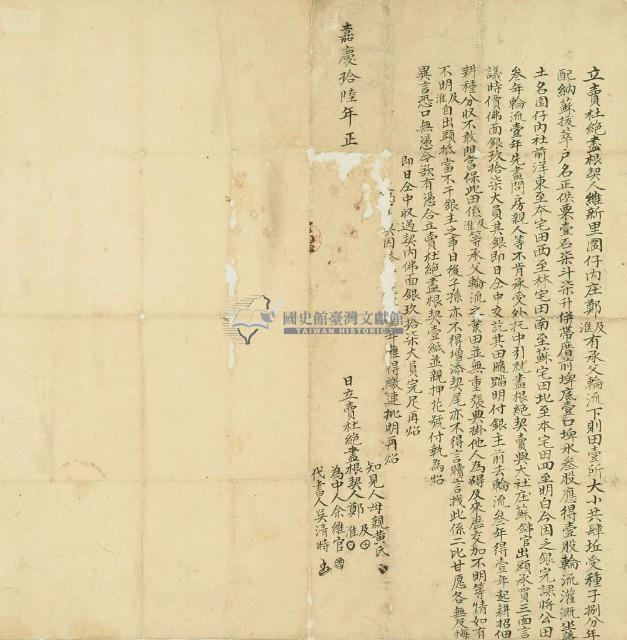 立賣杜絕盡根契人維新里圍仔內庄鄭及淮有承父輪流下則田壹所大小共肆坵受種子捌分年
配納蘇拔萃戶名正供粟壹石柒斗柒升併帶厝前埤底壹口埤水叁股應得壹股輪流灌溉坐落
土名圍仔內社前洋東至本宅田西至林宅田南至蘇宅田北至本宅田四至明白今因乏銀完課將公田
叁年輪流壹年先盡問房親人等不肯承受外托中引就盡根絕契賣與大社庄蘇 官出頭承買三面言
議時價佛面銀玖拾柒大員其銀即日仝中交訖其田隨踏明付銀主前去輪流叁年得壹年起耕招佃
耕種分收不敢阻當保此田係及淮等承父輪流之業田並無重張典掛他人為碍及來歷交加不明等情如有
不明及淮自出頭抵當不干銀主之事日後子孫亦不得增添契尾亦不得言贖言找此係二比甘愿各無反悔
異言恐口無憑今欲有憑合立賣杜絕盡根契壹紙並親押花號付執為炤
即日仝中收過契內佛面銀玖拾柒大員完足再炤
因 得繳連批明再炤
嘉慶拾陸年正
日立賣杜絕盡根契人鄭及淮
知見人母親黃氏
為中人余維官
代書人吳清時
國史館臺灣文獻館
TAIWAN HISTORICA